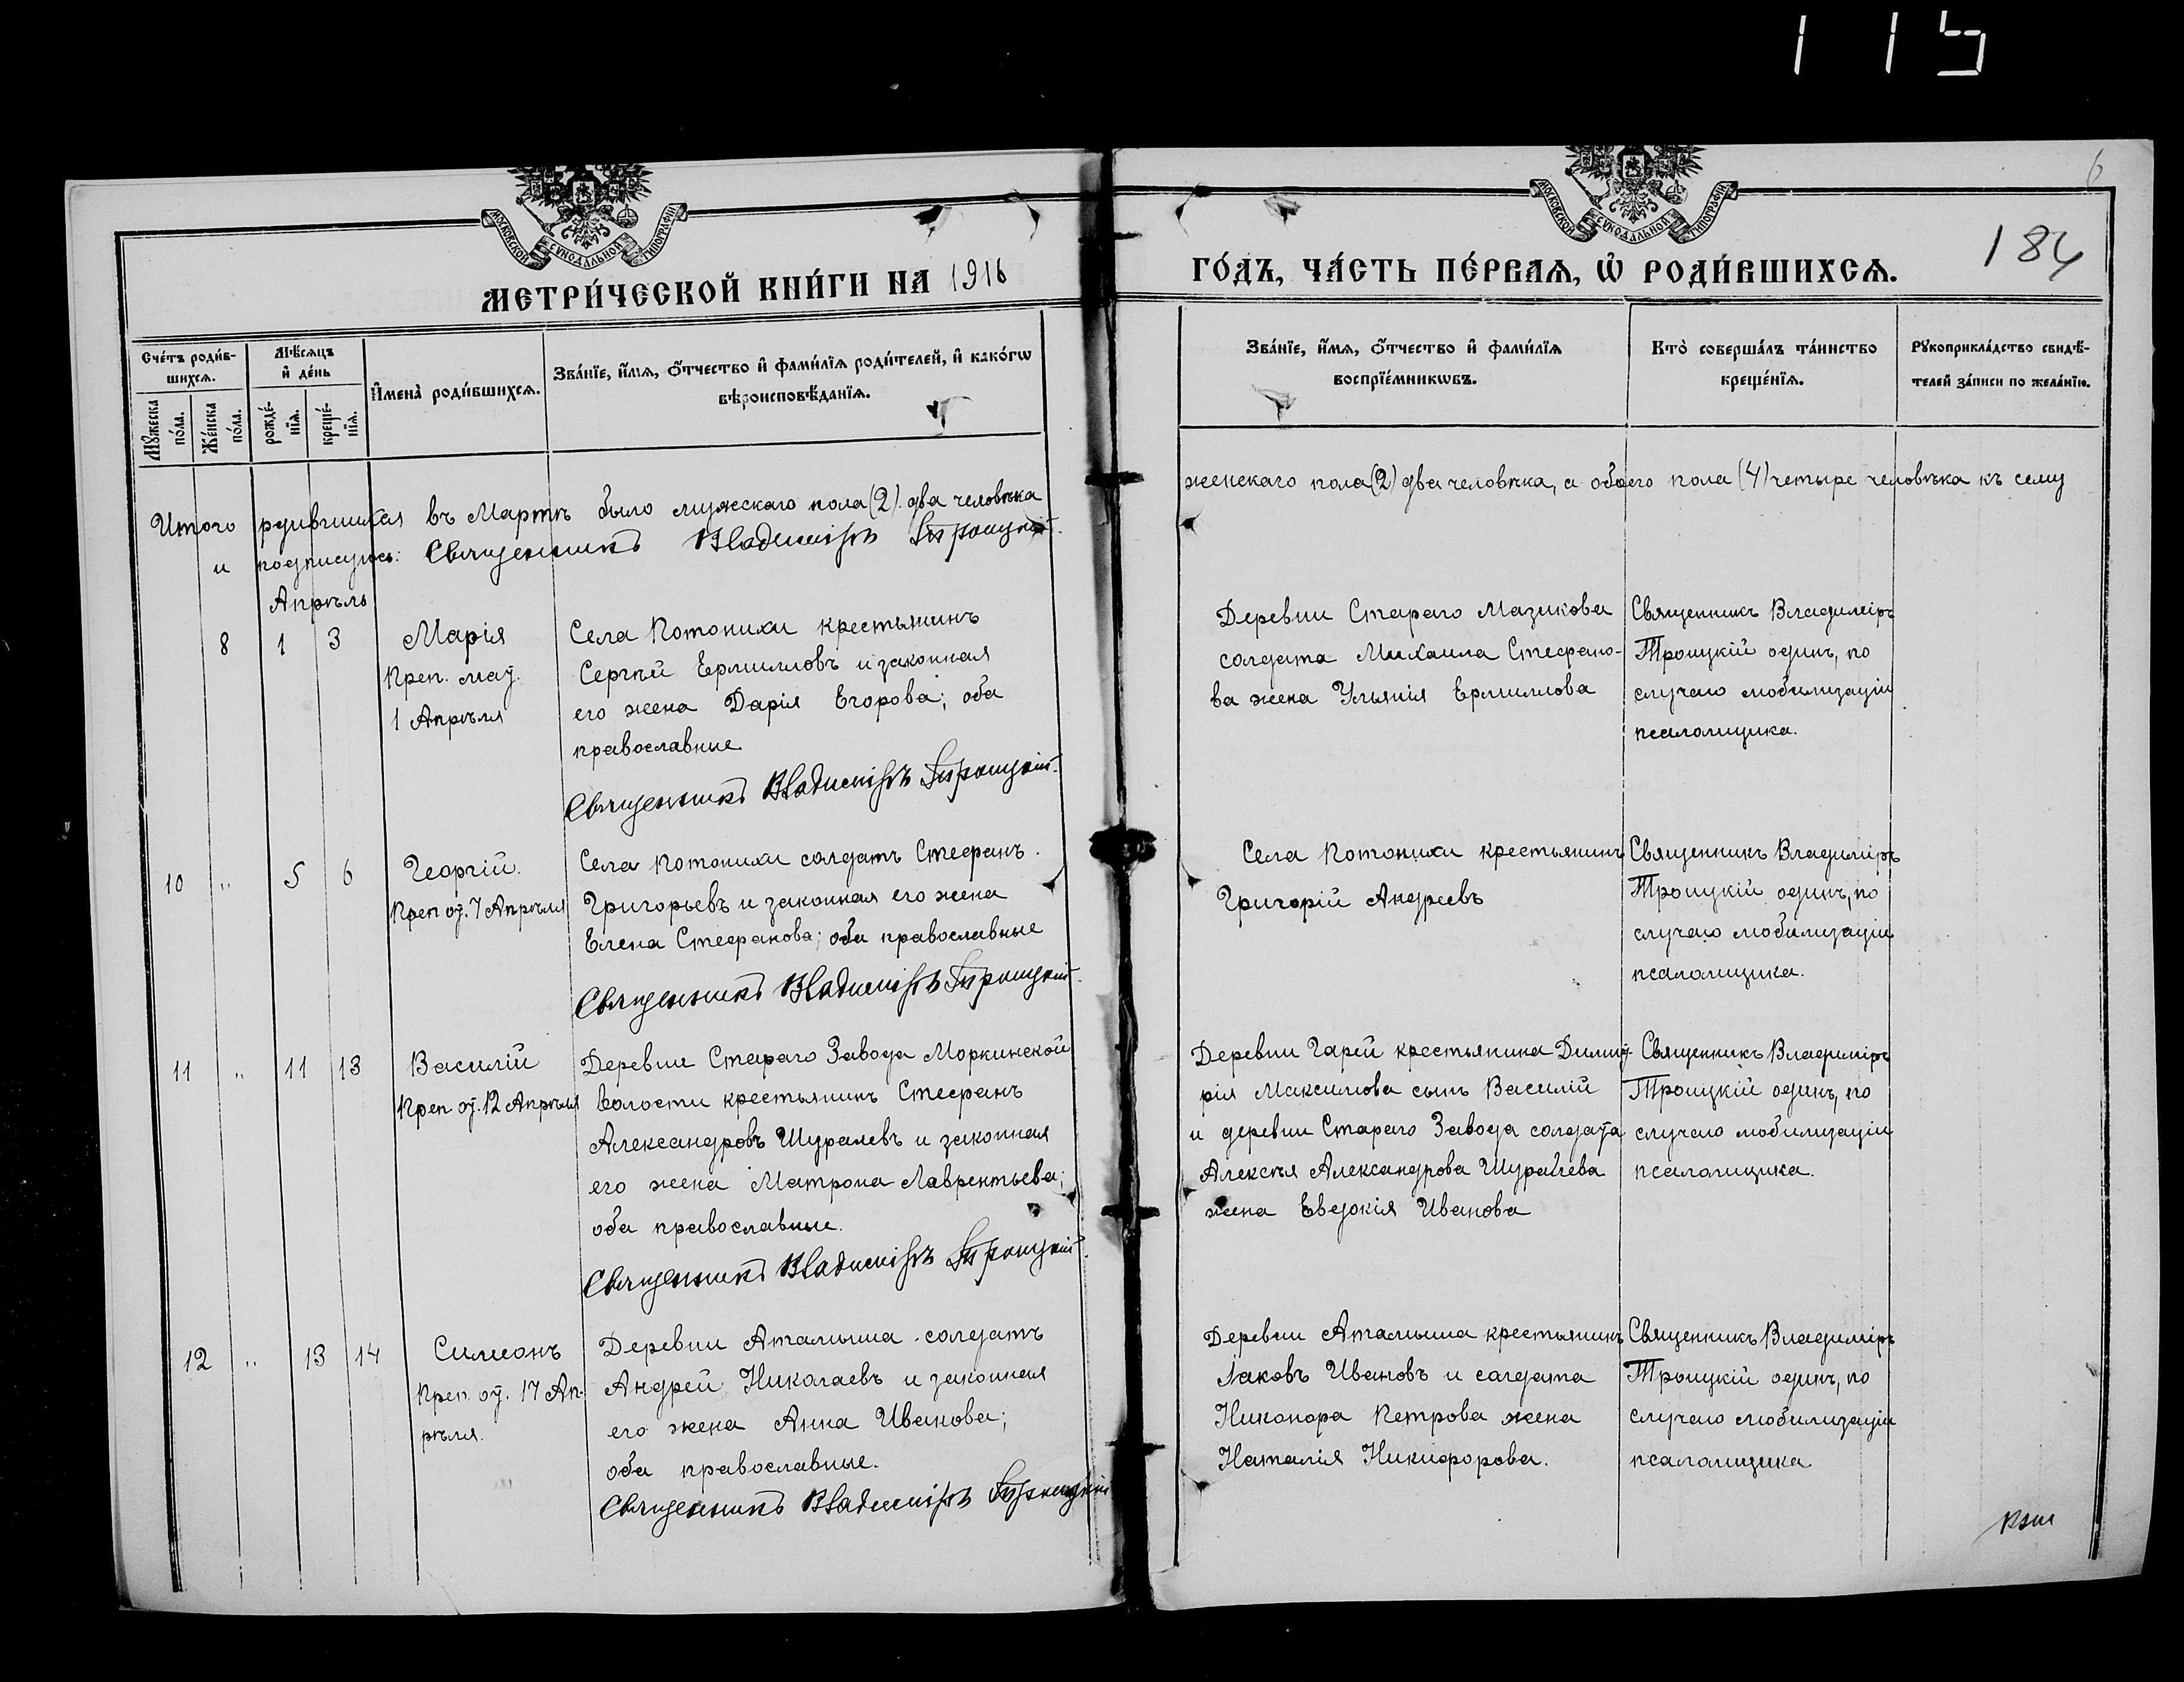 115
6
184
МОСКОВСКОЙ СУНОДАЛЬНОЙ ТИПОГРАФІИ
МОСКОВСКОЙ СУНОДАЛЬНОЙ ТИПОГРАФІИ
МЕТРИ́ЧЕСКОЙ КНИ́ГИ НА 1916
ГО́ДЪ, ЧА́СТЬ ПЕ́РВАѦ, Ѡ҆ РОДИ́ВШИХСѦ.
Сче́тъ роди́в-
шихсѧ.
Мѣ́сѧцъ
и҆ де́нь
Мꙋ́жеска
по́ла.
Же́нска
по́ла.
рожде́-
нїѧ.
креще́-
нїѧ.
И҆мена̀ роди́вшихсѧ.
Зва́нїе, и҆́мѧ, ѻ҆́тчество и҆ фами́лїѧ роди́телей, и҆ како́гѡ
вѣроисповѣ́данїѧ.
Зва́нїе, и҆́мѧ, ѻ҆́тчество и҆ фами́лїѧ
воспрїе́мникѡвъ.
Кто̀ соверша́лъ та́инство
креще́нїѧ.
Рꙋкоприкла́дство свидѣ́-
телей за́писи по жела́нїю.
Итого родившихся въ Мартѣ было мужскаго пола (2) два человѣка
женскаго пола (2) два человѣка, а обоего пола (4) четыре человѣка къ сему
и подписуюсь: Священникъ Владиміръ Троицкій.
Апрѣль
8 1 3
Марія
Преп. мац.
1 Апрѣля
Села Потонихи крестьянинъ
Сергѣй Ермилловъ и законная
его жена Дарія Егорова; оба
православные
Священникъ Владиміръ Троицкій.
Деревни Стараго Мазикова
солдата Михаила Стефано-
ва жена Ульянія Ермилова
Священникъ Владиміръ
Троицкій одинъ, по
случаю мобилизаціи
псаломщика.
10 " 5 6
Георгій.
Преп оц. 7 Апрѣля
Села Потонихи солдатъ Стефанъ
Григорьевъ и законная его жена
Елена Стефанова; оба православные
Священникъ Владиміръ Троицкій.
Села Потонихи крестьянинъ
Григорій Андреевъ
Священникъ Владиміръ
Троицкій одинъ, по
случаю мобилизаціи
псаломщика.
11 " 11 13
Василій
Преп оц. 12 Апрѣля
Деревни Стараго Завода Моркинской
волости крестьянинъ Стефанъ
Александровъ Шуралевъ и законная
его жена Матрона Лаврентьева;
оба православные.
Священникъ Владиміръ Троицкій.
Деревни Гарей крестьянина Дмит-
рія Максимова сынъ Василій
и деревни Стараго Завода солдата
Алексѣя Александрова Шуралева
жена Евдокія Иванова
Священникъ Владиміръ
Троицкій одинъ, по
случаю мобилизаціи
псаломщика.
12 " 13 14
Симеонъ
Преп. оц. 17 Ап-
рѣля.
Деревни Аталыша солдатъ
Андрей Николаевъ и законная
его жена Анна Иванова;
оба православные.
Священникъ Владиміръ Троицкій
Деревни Аталыша крестьянинъ
Іаковъ Ивановъ и солдата
Никонора Петрова жена
Наталія Никифорова.
Священникъ Владиміръ
Троицкій одинъ, по
случаю мобилизаціи
псаломщика